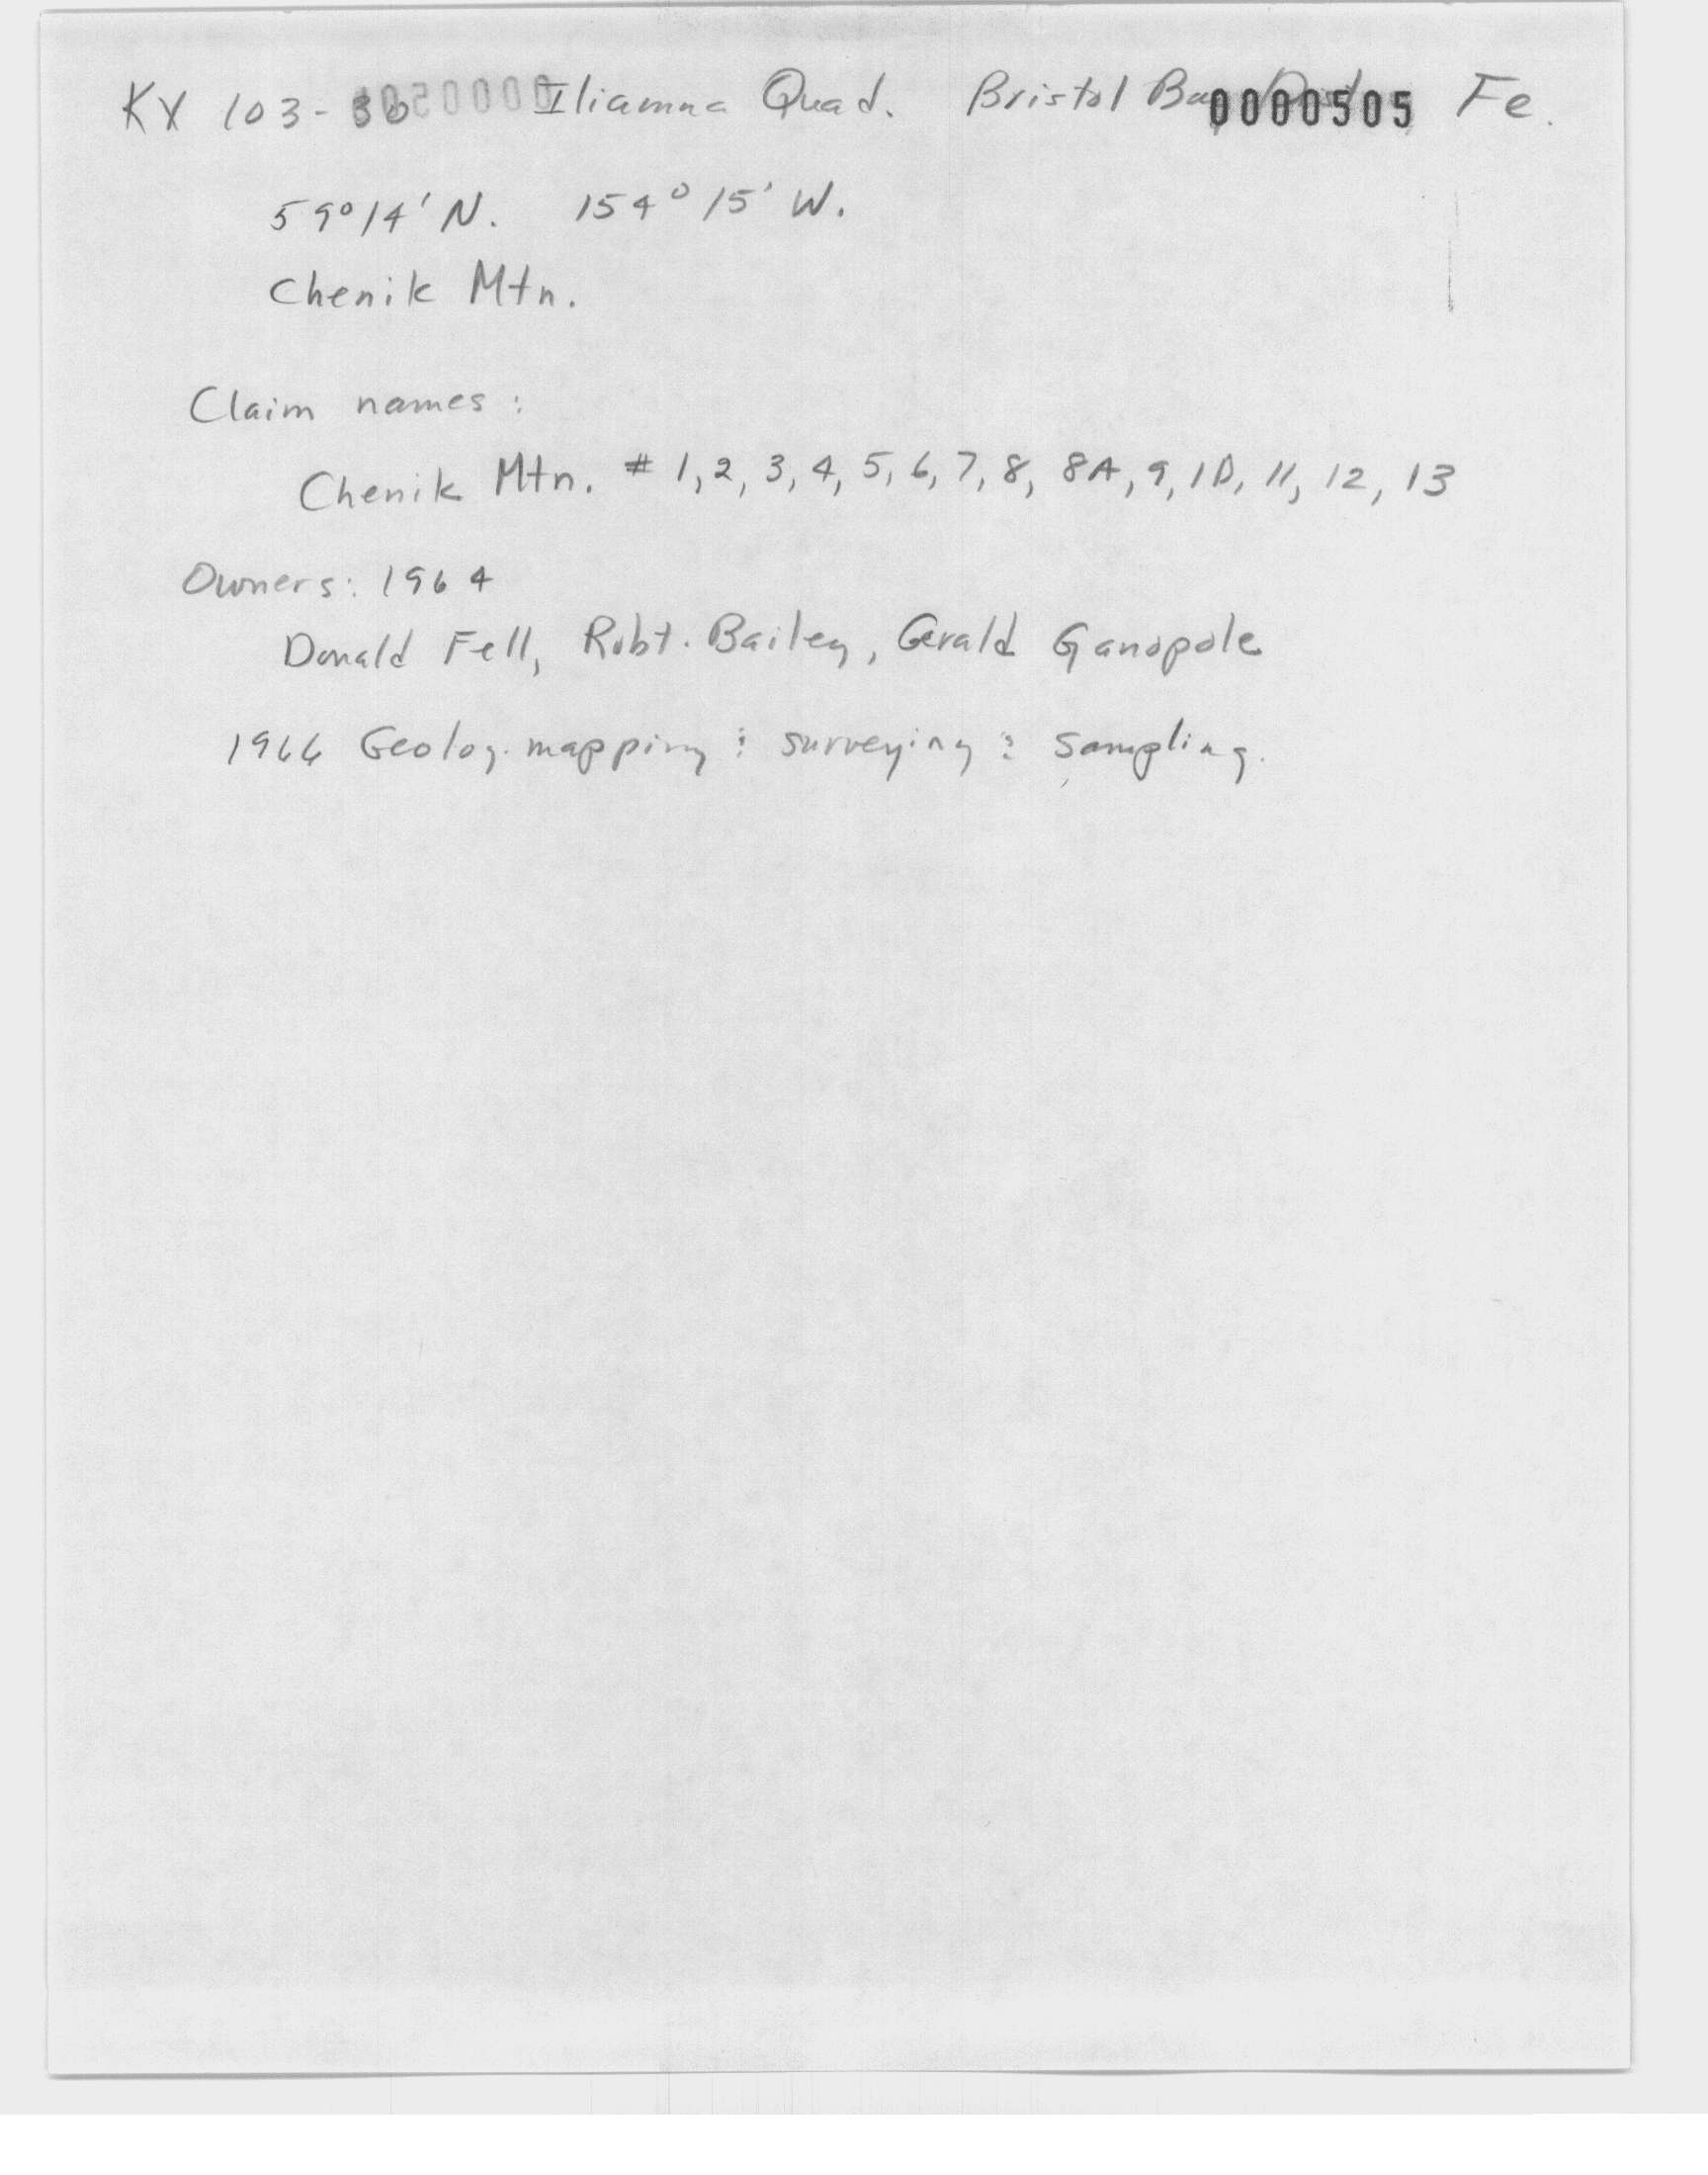 KX 103-36 Iliamna Quad. Bristol Bay Dist 0000505 Fe.
59°14' N. 154°15' W.
Chenik Mtn.
Claim names:
Chenik Mtn. # 1, 2, 3, 4, 5, 6, 7, 8, 8A, 9, 10, 11, 12, 13
Owners: 1964
Donald Fell, Robt. Bailey, Gerald Ganopole
1966 Geolog. mapping & surveying & sampling.